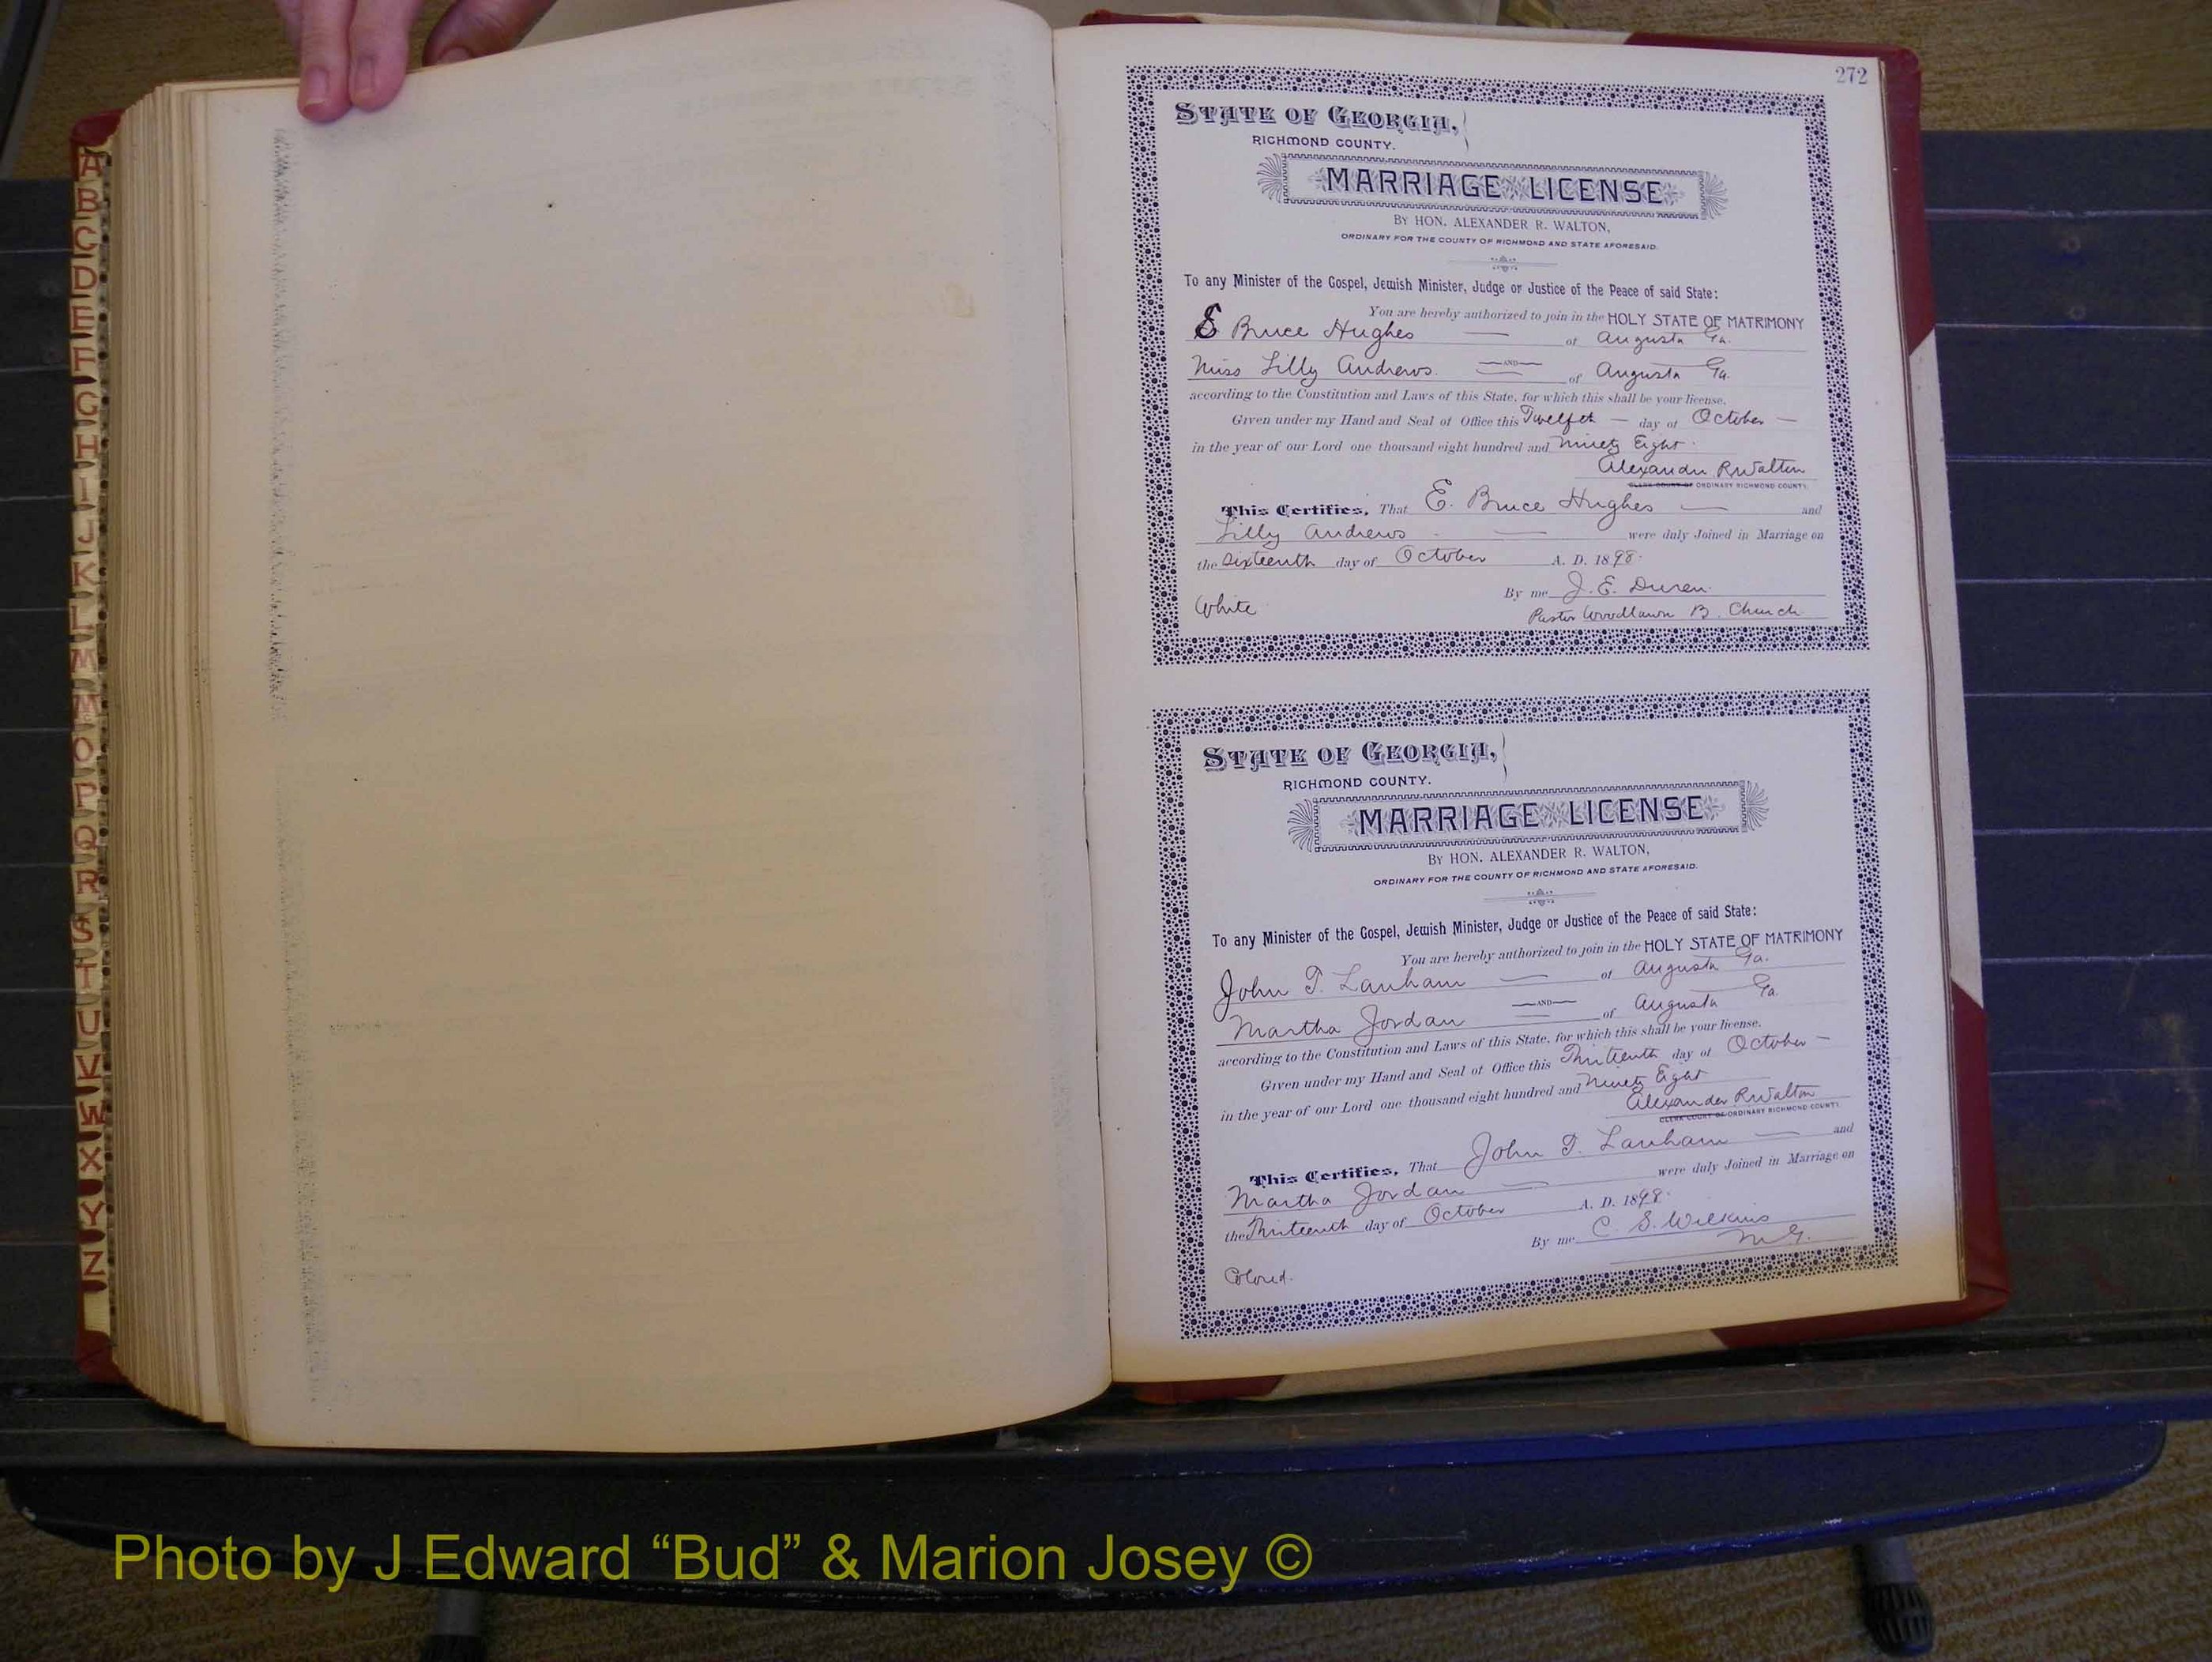 272
STATE OF GEORGIA,
RICHMOND COUNTY.
MARRIAGE LICENSE
BY HON. ALEXANDER R. WALTON,
ORDINARY FOR THE COUNTY OF RICHMOND AND STATE AFORESAID.
To any Minister of the Gospel, Jewish Minister, Judge or Justice of the Peace of said State:
You are hereby authorized to join in the HOLY STATE OF MATRIMONY
E Bruce Hughes of Augusta Ga.
AND
Miss Lilly Andrews of Augusta Ga.
according to the Constitution and Laws of this State, for which this shall be your license.
Given under my Hand and Seal of Office this Twelfth day of October
in the year of our Lord one thousand eight hundred and Ninety Eight
Alexander R Walton
CLERK COURT OF ORDINARY RICHMOND COUNTY.
This Certifies, That E. Bruce Hughes and
Lilly Andrews were duly Joined in Marriage on
the Sixteenth day of October A. D. 1898.
By me J. E. Duren.
White
Pastor Woodlawn B. Church
STATE OF GEORGIA,
RICHMOND COUNTY.
MARRIAGE LICENSE
BY HON. ALEXANDER R. WALTON,
ORDINARY FOR THE COUNTY OF RICHMOND AND STATE AFORESAID.
To any Minister of the Gospel, Jewish Minister, Judge or Justice of the Peace of said State:
You are hereby authorized to join in the HOLY STATE OF MATRIMONY
John T. Lanham of Augusta Ga.
AND
Martha Jordan of Augusta Ga.
according to the Constitution and Laws of this State, for which this shall be your license.
Given under my Hand and Seal of Office this Thirteenth day of October
in the year of our Lord one thousand eight hundred and Ninety Eight
Alexander R Walton
CLERK COURT OF ORDINARY RICHMOND COUNTY.
This Certifies, That John T. Lanham and
Martha Jordan were duly Joined in Marriage on
the Thirteenth day of October A. D. 1898.
By me C. S. Wilkins
M. G.
Colored.
A
B
C
D
E
F
G
H
I
J
K
L
M
M
O
P
Q
R
S
T
U
V
W
X
Y
Z
Photo by J Edward “Bud” & Marion Josey ©